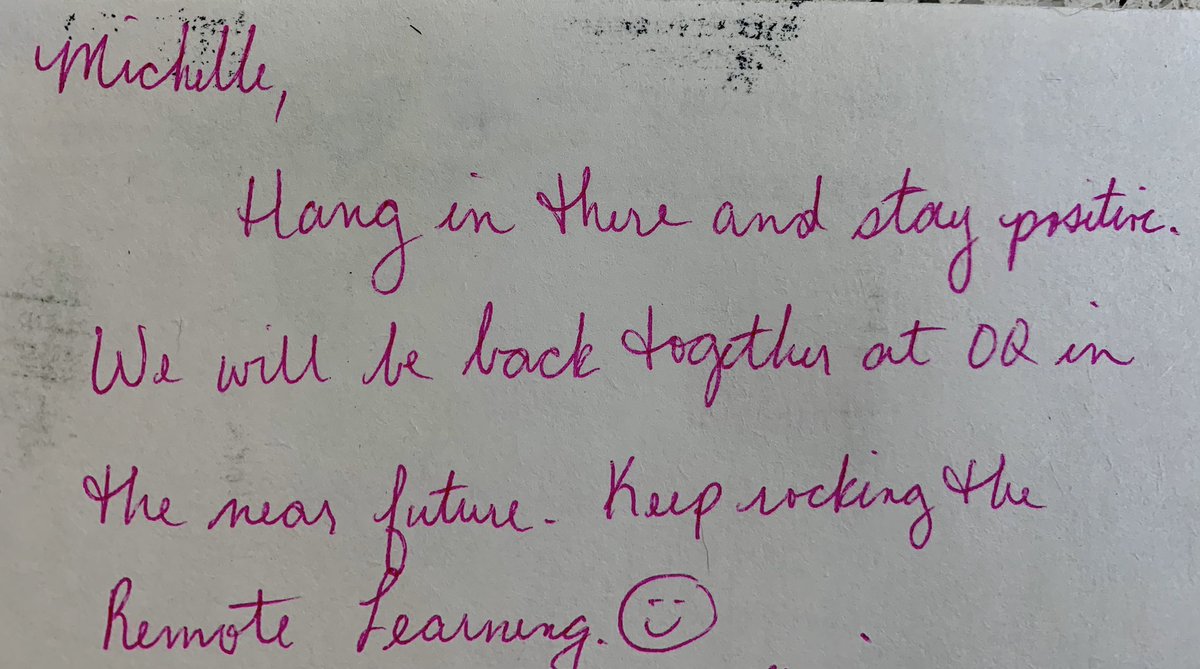 Michelle,
Hang in there and stay positive.
We will be back together at OQ in
the near future. Keep rocking the
Remote Learning.